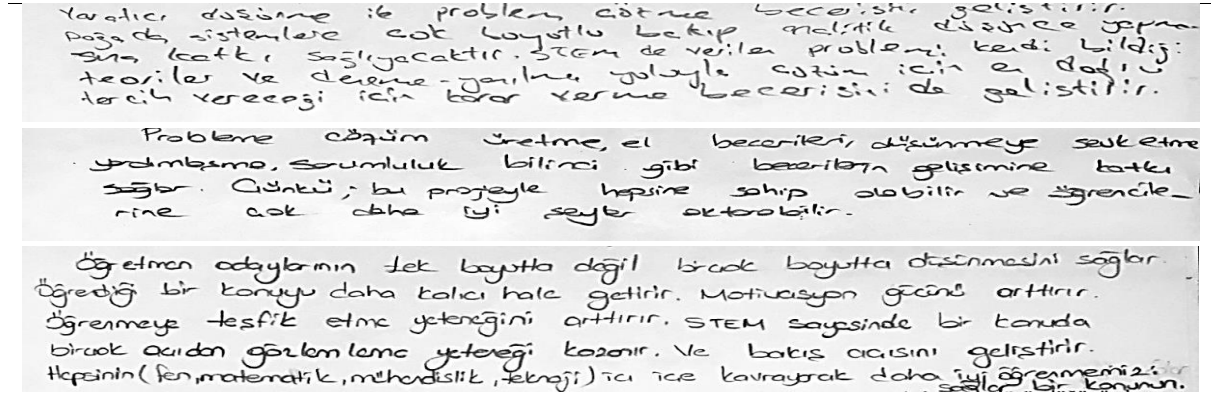 Yaratıcı düşünme ile problem çözme becerisi geliştirir.
sistemlere çok boyutlu bakıp analitik düşünce yapma-
sına katkı sağlayacaktır. STEM de verilen problemi kendi bildiği
teoriler ve deneme-yanılma yoluyla çözüm için en doğru
tercih vereceği için karar verme becerisini de geliştirir.
Probleme çözüm üretme, el becerileri, düşünmeye sevk etme
yardımlaşma, sorumluluk bilinci gibi becerilerin gelişimine katkı
sağlar. Çünkü; bu projeyle hepsine sahip olabilir ve öğrencile-
rine çok daha iyi şeyler aktarabilir.
Öğretmen adaylarının tek boyutta değil birçok boyutta düşünmesini sağlar.
Öğrediği bir konuyu daha kalıcı hale getirir. Motivasyon gücünü arttırır.
Öğrenmeye teşfik etme yeteneğini arttırır. STEM sayesinde bir konuda
birçok açıdan gözlemleme yeteneği kazanır. Ve bakış açısını geliştirir.
Hepsinin (fen, matematik, mühendislik, teknoji) içi içe kavrayarak daha iyi öğrenmemizi
sağlar bir konunun.